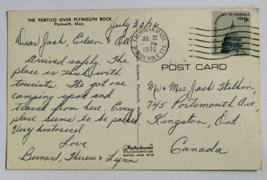 THE PORTICO OVER PLYMOUTH ROCK
Plymouth, Mass.
July 22/76
Dear Jack, Eileen & All
Arrived safely. The
place is thick with
tourists. We got one
camping spot and
travel from here. Every
place seems to be packed
Very historical
Love
Bernard, Theresa & Lynn
PM
1976
POST CARD
Mr & Mrs. Jack
745 Portsmouth Ave
Kingston, Ont
Canada